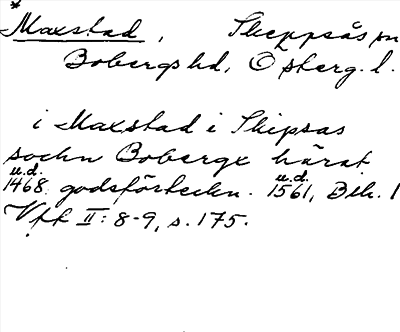 *
Maxstad, Skeppsås sn
Bobergs hd, Österg. l.
i Maxstad i Skipsas
sochn Boberge härat
u.d. u.d.
1468 godsförteckn. 1561, Bih. 1
Vff II: 8-9, s. 175.